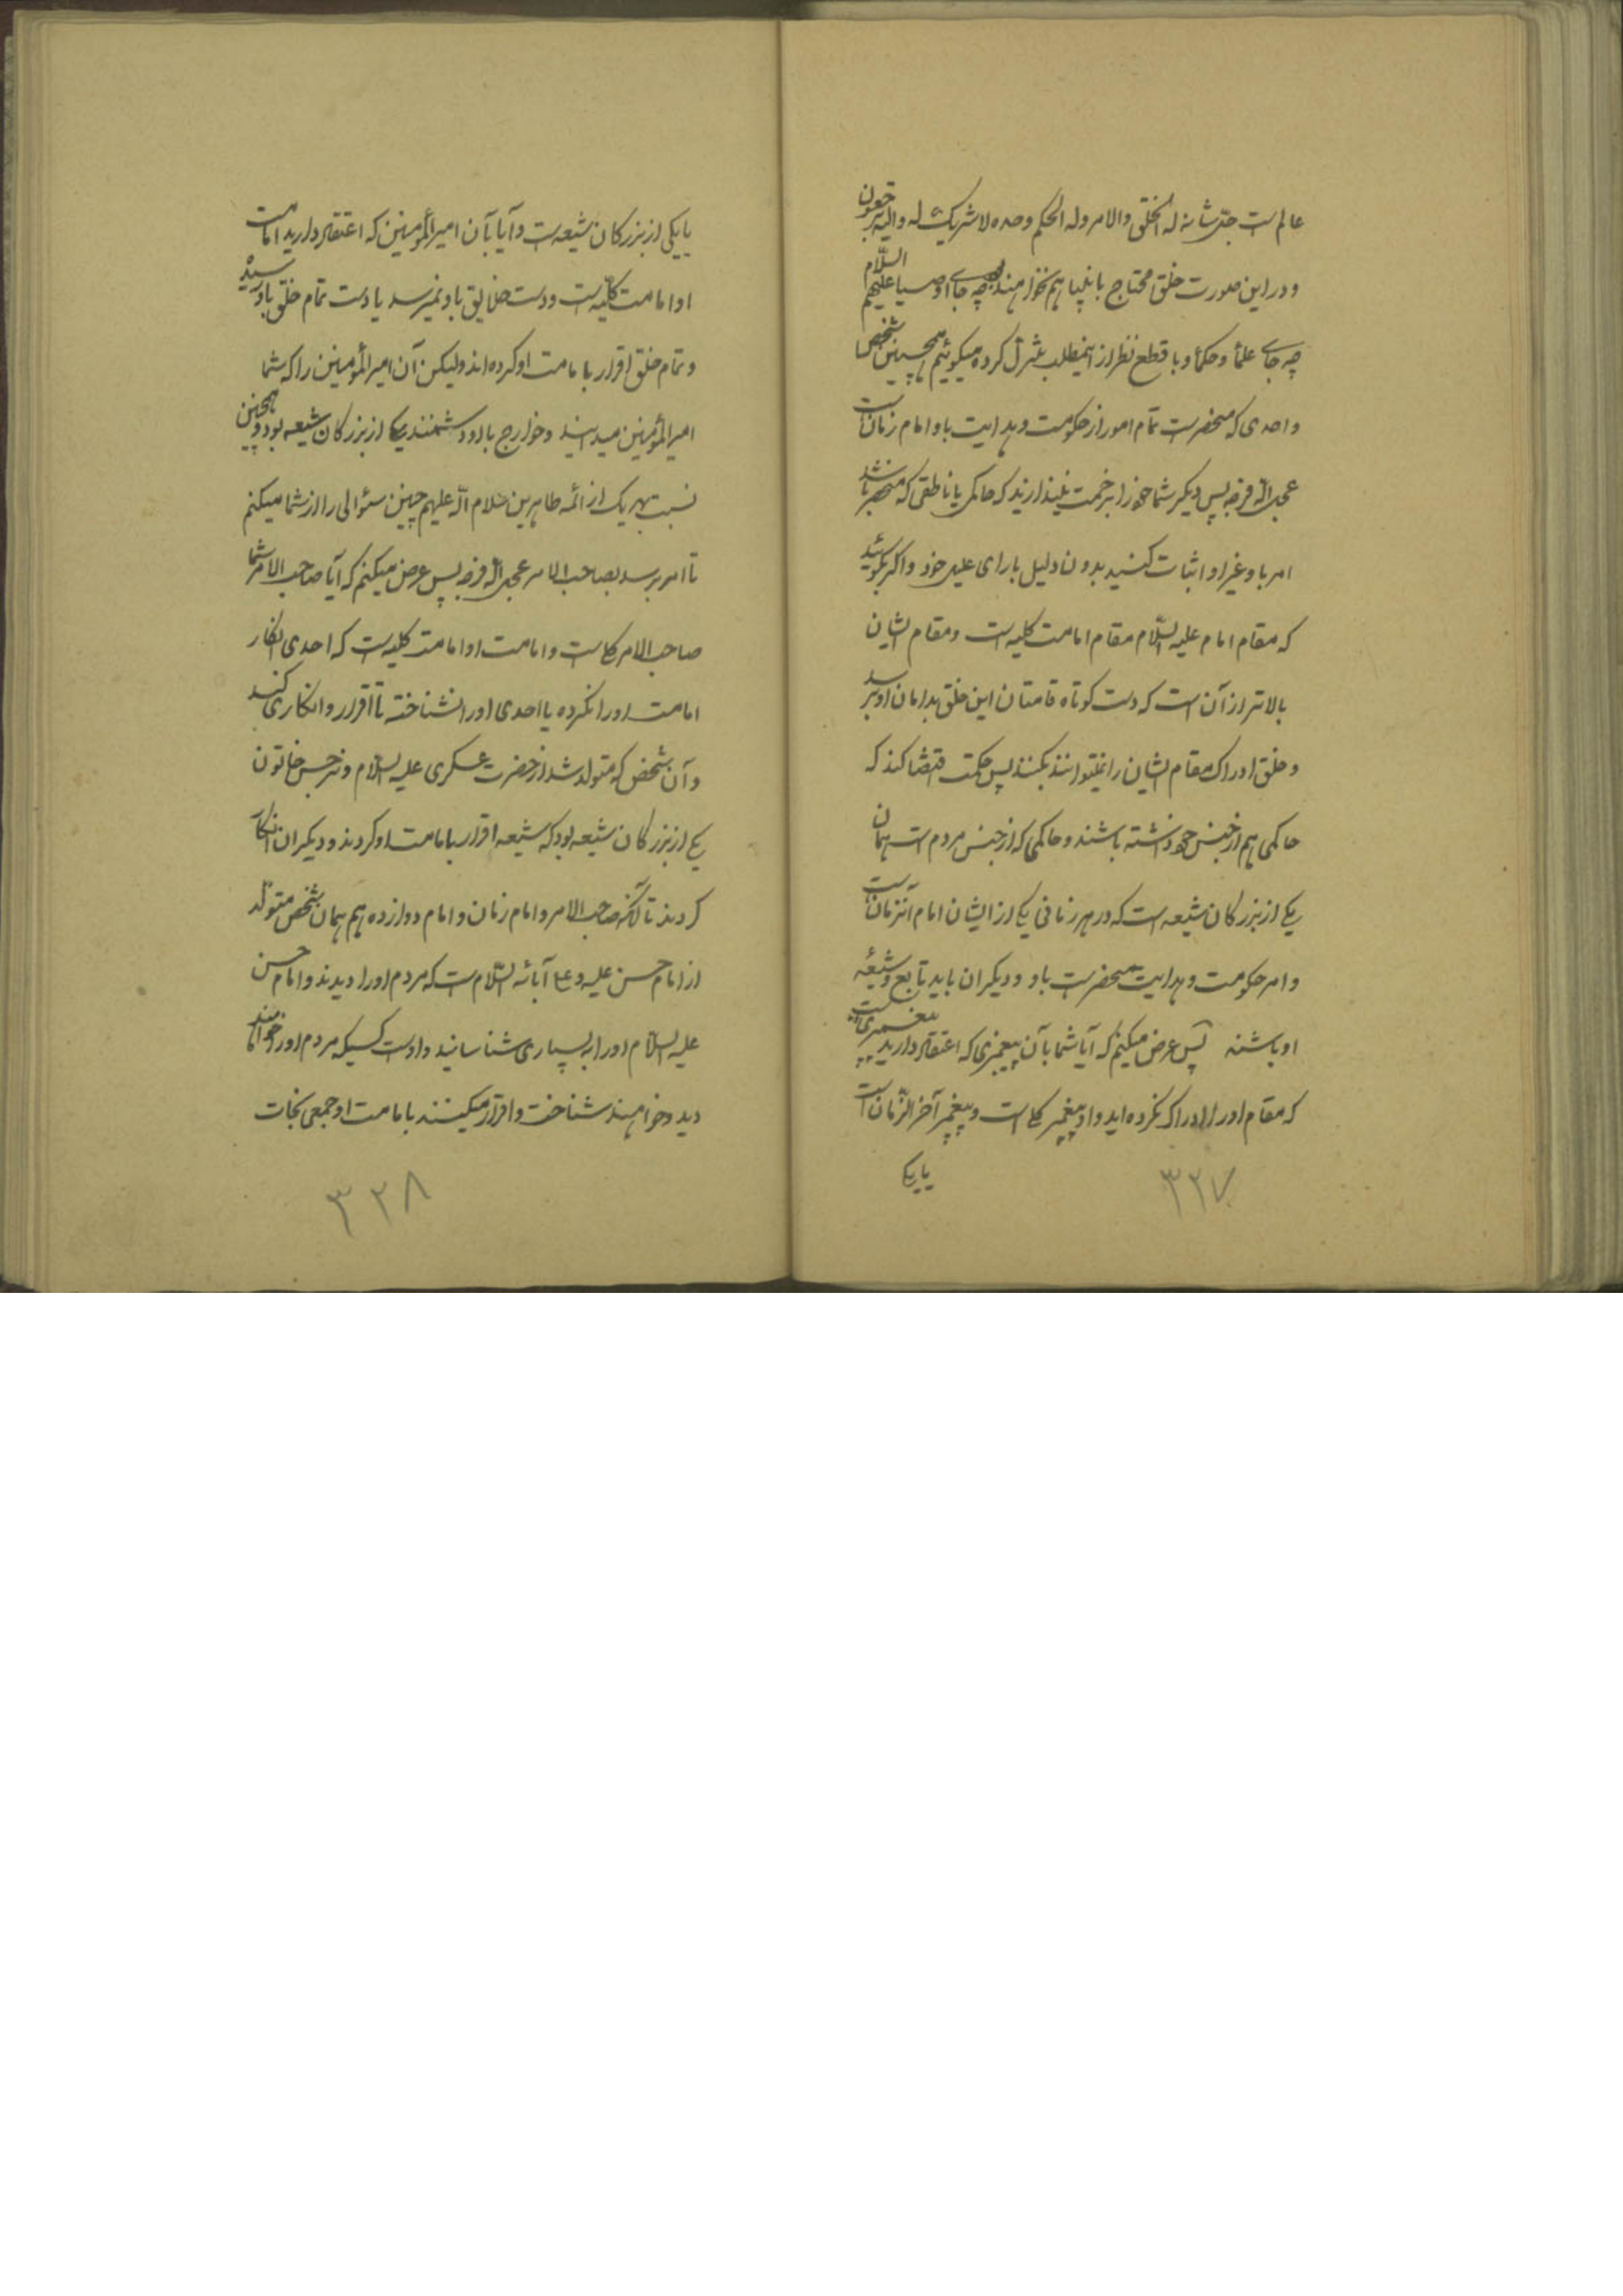 عالم است جلّ شانه له الخلق والامر وله الحکم وحده لا شریک له والیه ترجعون
و در این صورت خلق محتاج بانبیا هم نخواهند بود چه جای اوصیا علیهم السّلام
چه جای علمأ و حکمأ و با قطع نظر از اینمطلب تنزل کرده میگوئیم همچنین شخص
واحدی که منحصر است تمام امور از حکومت و هدایت باو امام زمان است
عجل اللّه فرجه پس دیگر شما خود را بزحمت نیندازید که حاکمی یا ناطقی که منحصر باشد
امر باو غیر او اثبات کنید بدون دلیل بارای علیل خود و اگر بگوئید
که مقام امام علیه السّلام مقام امامت کلیه است و مقام ایشان
بالاتر از آن است که دست کوتاه قامتان این خلق بدامان او برسد
و خلق ادراک مقام ایشان را نمیتوانند بکنند پس حکمت اقتضا کند که
حاکمی هم از جنس خود داشته باشند و حاکمی که از جنس مردم است همان
یکی از بزرگان شیعه است که در هر زمانی یکی از ایشان امام آنزمان است
و امر حکومت و هدایت منحصر است باو و دیگران باید تابع و شیعهٔ
او باشند پس عرض میکنم که آیا شما بآن پیغمبری که اعتقاد دارید پیغمبری است
که مقام او را ادراک نکرده اید و او پیغمبر کلی است و پیغمبر آخر الزّمان است
یا یکی
۳۳۷
یا یکی از بزرگان شیعه است و آیا بآن امیرالمؤمنین که اعتقاد دارید امامت
او امامت کلّیه است و دست خلایق باو نمیرسد یا دست تمام خلق باو رسیده
و تمام خلق اقرار بامامت او کرده اند ولیکن آن امیرالمؤمنین را که شما
امیرالمؤمنین میدانید و خوارج با او دشمنند یکی از بزرگان شیعه بود و همچنین
نسبت بهریک از ائمه طاهرین سلام اللّه علیهم چنین سئوالی را از شما میکنم
تا امر برسد بصاحب الامر عجل اللّه فرجه پس عرض میکنم که آیا صاحب الامر شما
صاحب الامر کلی است و امامت او امامت کلیه است که احدی انکار
امامت او را نکرده یا احدی او را نشناخته تا اقرار و انکاری کند
و آن شخص که متولد شد از حضرت عسکری علیه السلام و نرجس خاتون
یکی از بزرگان شیعه بود که شیعه اقرار بامامت او کردند و دیگران انکار
کردند تا آنکه صاحب الامر و امام زمان و امام دوازدهم همان شخص متولد
از امام حسن علیه و علی آبائه السّلام است که مردم او را دیدند و امام حسن
علیه السّلام او را به بسیاری شناسانید و اوست کسیکه مردم او را خواهند
دید و خواهند شناخت و اقرار میکنند بامامت او جمعی نجات
۳۳۸